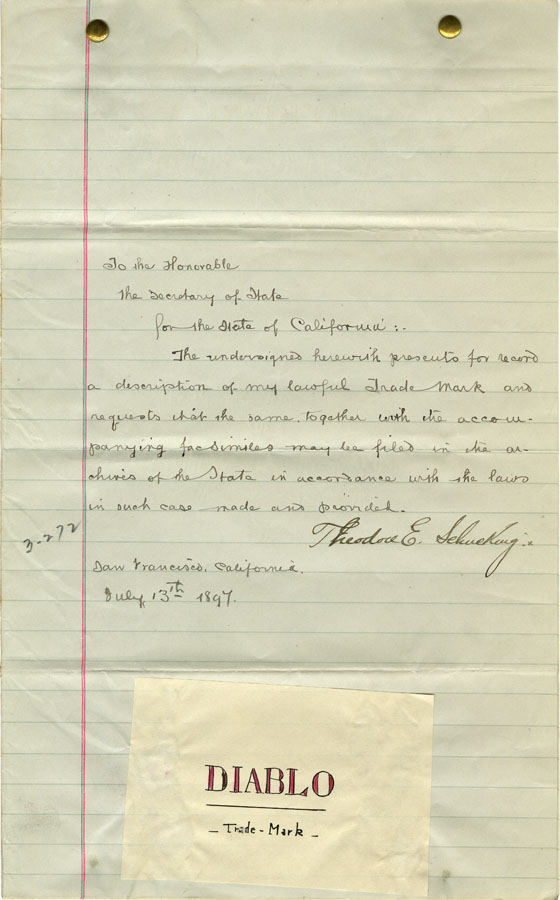 To the Honorable
the Secretary of State
for the State of California :-
The undersigned herewith presents for record
a description of my lawful Trade Mark and
requests that the same, together with the accom-
panying facsimiles may be filed in the ar-
chives of the State in accordance with the laws
in such case made and provided.
Theodore E. Schucking.
3-272
San Francisco, California.
July 13th 1897.
DIABLO
- Trade-Mark -